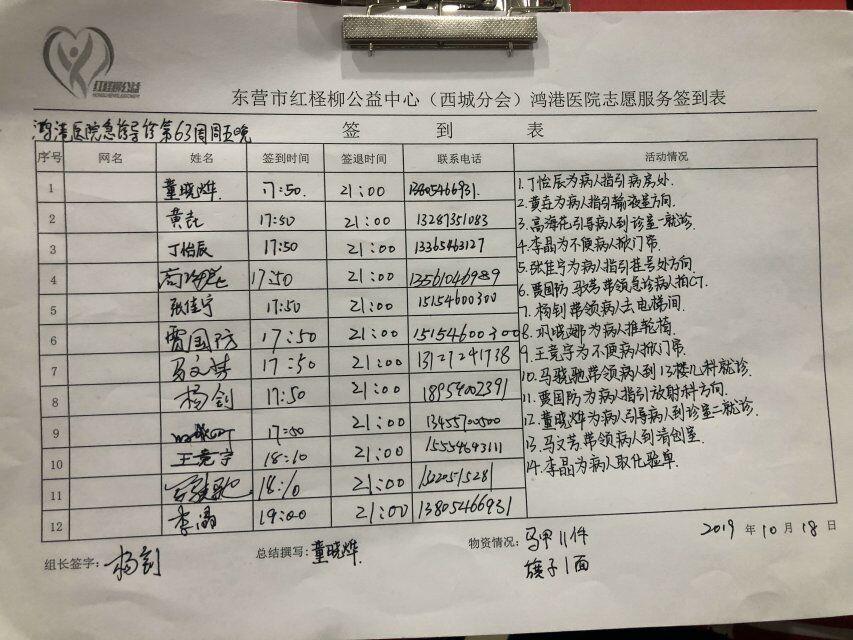 红柽柳公益
东营市红柽柳公益中心（西城分会）鸿港医院志愿服务签到表
鸿港医院急诊导诊第63周周五晚
签 到 表
序号 网名 姓名 签到时间 签退时间 联系电话 活动情况
1 童晓烨 17:50 21:00 13805466931
2 黄垚 17:50 21:00 13287351083
3 丁怡辰 17:50 21:00 13365463127
4 高海花 17:50 21:00 13561046989
5 张佳宁 17:50 21:00 15154600300
6 贾国防 17:50 21:00 15154600300
7 马文芳 17:50 21:00 13127241738
8 杨钊 17:50 21:00 18954002391
9 17:50 21:00 13455700500
10 王竞宇 18:10 21:00 15554693111
11 马骏驰 18:10 21:00
12 李晶 19:00 21:00 13805466931
1.丁怡辰为病人指引病房处.
2.黄垚为病人指引输液室方向.
3.高海花引导病人到诊室一就诊.
4.李晶为不便病人掀门帘.
5.张佳宁为病人指引挂号处方向.
6.贾国防 马文芳带领急诊病人拍CT.
7.杨钊带领病人去电梯间.
8.巩晓娜为病人推轮椅.
9.王竞宇为不便病人掀门帘.
10.马骏驰带领病人到13楼儿科就诊.
11.贾国防为病人指引放射科方向.
12.童晓烨为病人引导病人到诊室二就诊.
13.马文芳带领病人到清创室.
14.李晶为病人取化验单.
组长签字: 杨钊
总结撰写: 童晓烨
物资情况: 马甲11件
旗子1面
2019 年 10 月 18 日